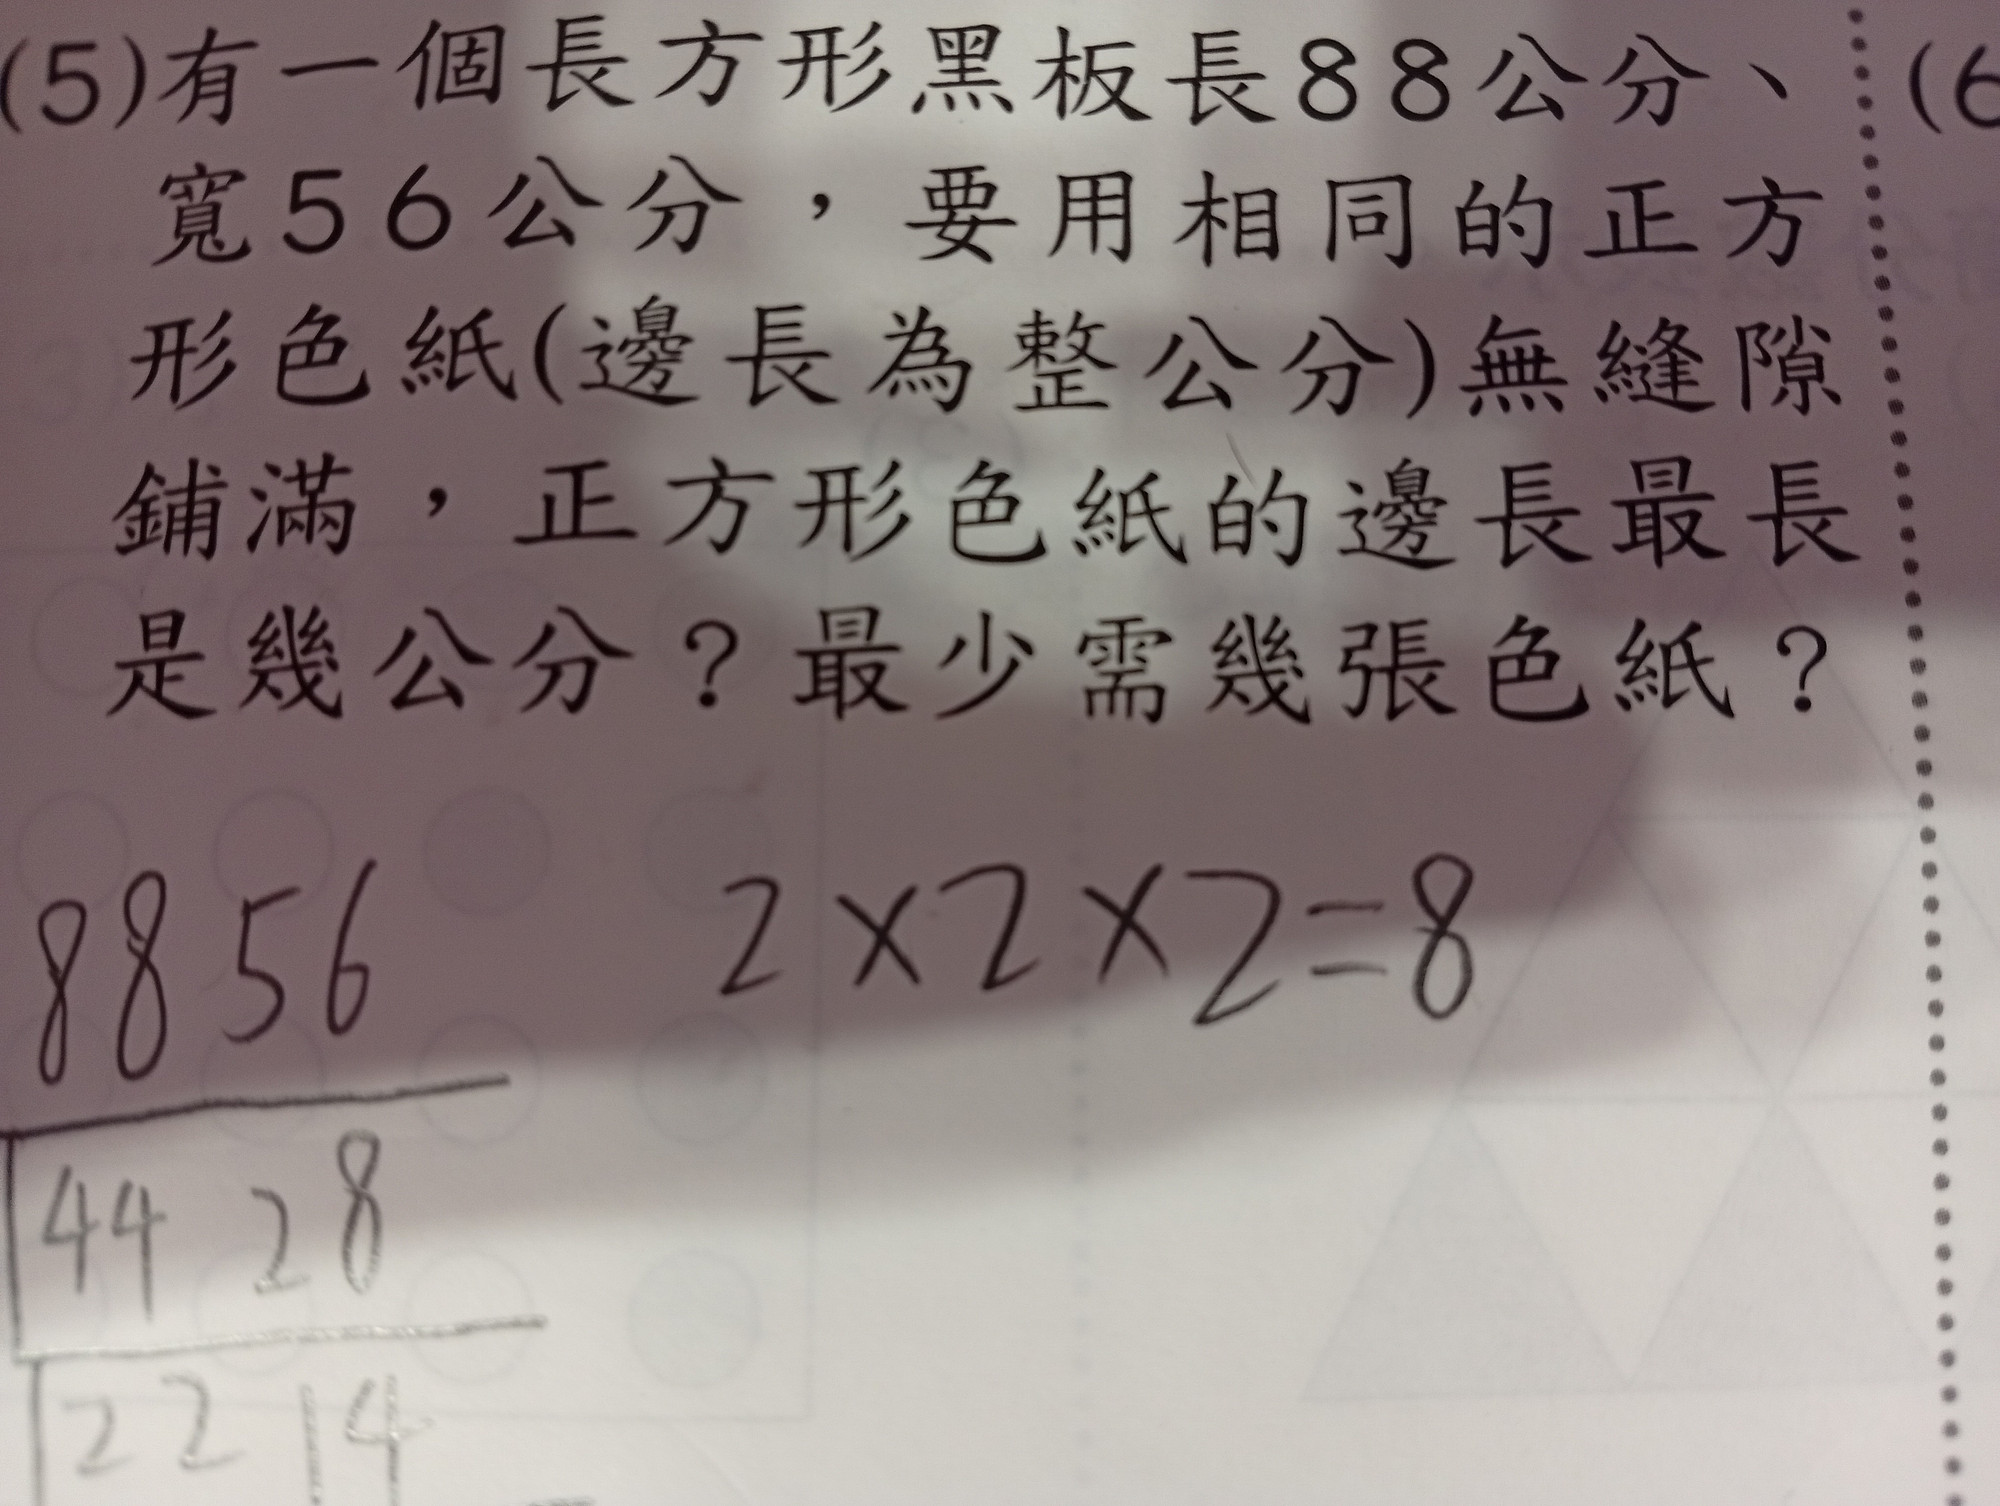 (5)有一個長方形黑板長88公分、
(6
寬56公分，要用相同的正方
形色紙(邊長為整公分)無縫隙
鋪滿，正方形色紙的邊長最長
是幾公分？最少需幾張色紙？
88 56
2×2×2=8
44 28
22 14